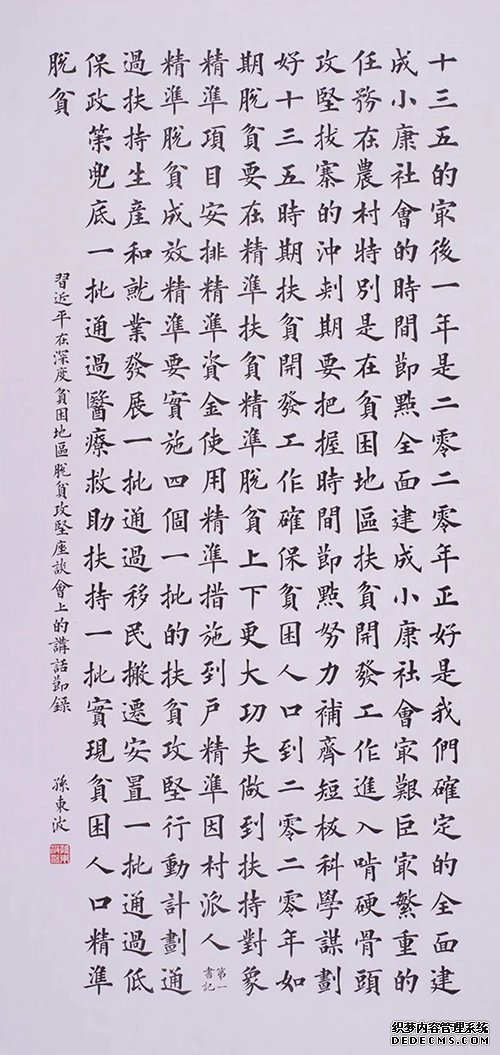 十三五的冣後一年是二零二零年正好是我們確定的全面建
成小康社會的時間節點全面建成小康社會冣艱巨冣繁重的
任務在農村特別是在貧困地區扶貧開發工作進入啃硬骨頭
攻堅拔寨的沖刺期要把握時間節點努力補齊短板科學謀劃
好十三五時期扶貧開發工作確保貧困人口到二零二零年如
期脫貧要在精準扶貧精準脫貧上下更大功夫做到扶持對象
精準項目安排精準資金使用精準措施到戶精準因村派人第一書記
精準脫貧成效精準要實施四個一批的扶貧攻堅行動計劃通
過扶持生産和就業發展一批通過移民搬遷安置一批通過低
保政策兜底一批通過醫療救助扶持一批實現貧困人口精準
脫貧
習近平在深度貧困地區脫貧攻堅座談會上的講話節錄
孫東波
织梦内容管理系统
DEDECMS.COM